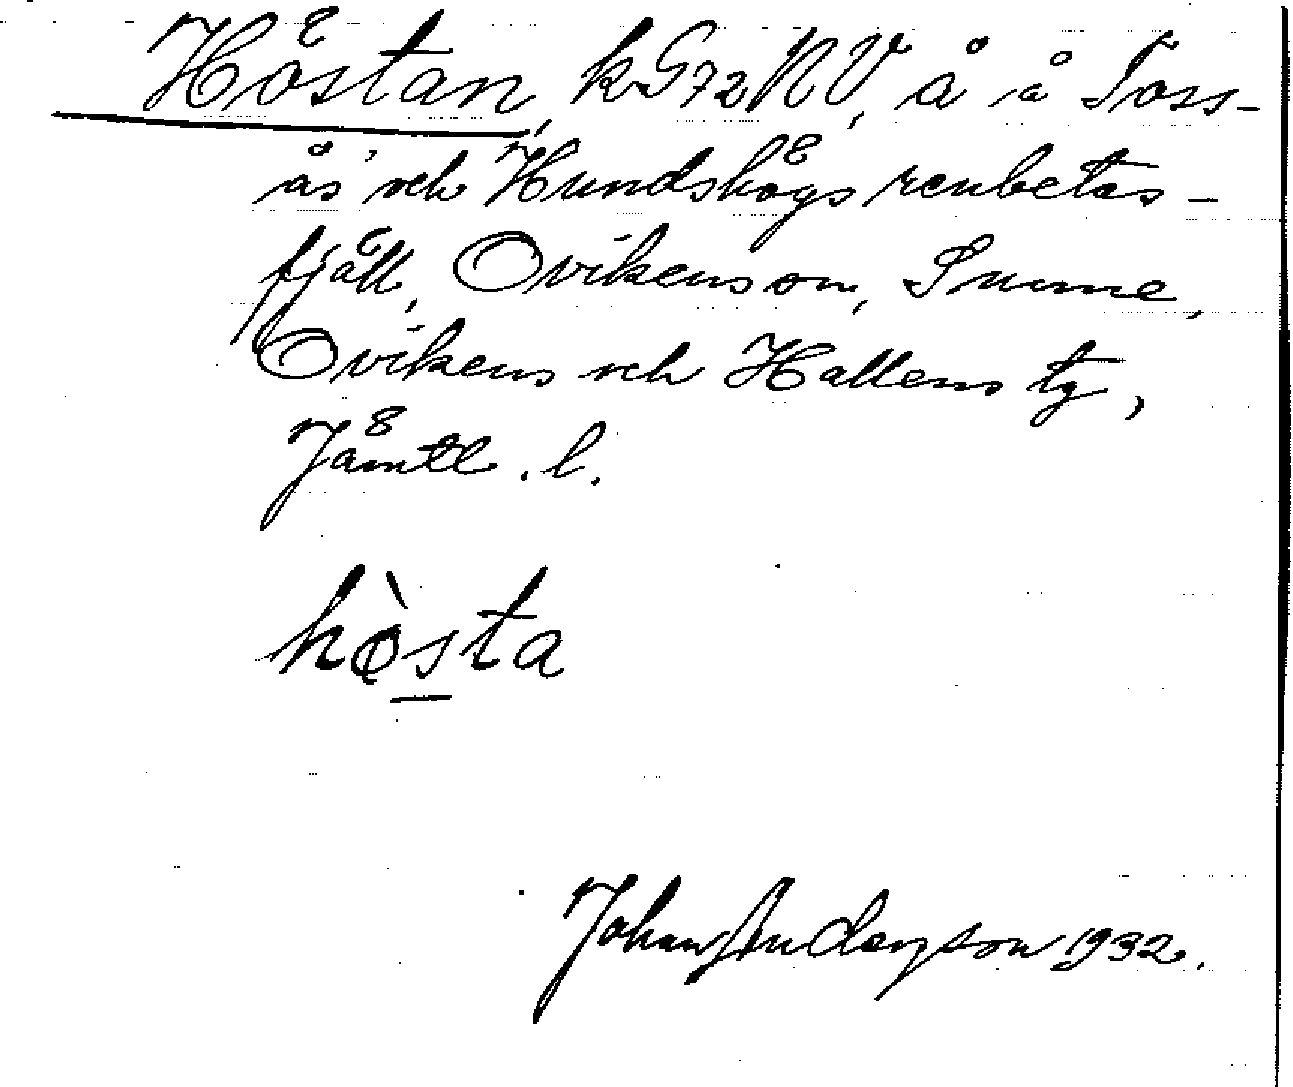 Höstan, kG72NV, å å Toss-
ås och Hundshögs renbetes-
fjäll, Ovikens sn, Sunne,
Ovikens och Hallens tg,
Jämtl. l.
hòsta
Johan Anderson 1932.